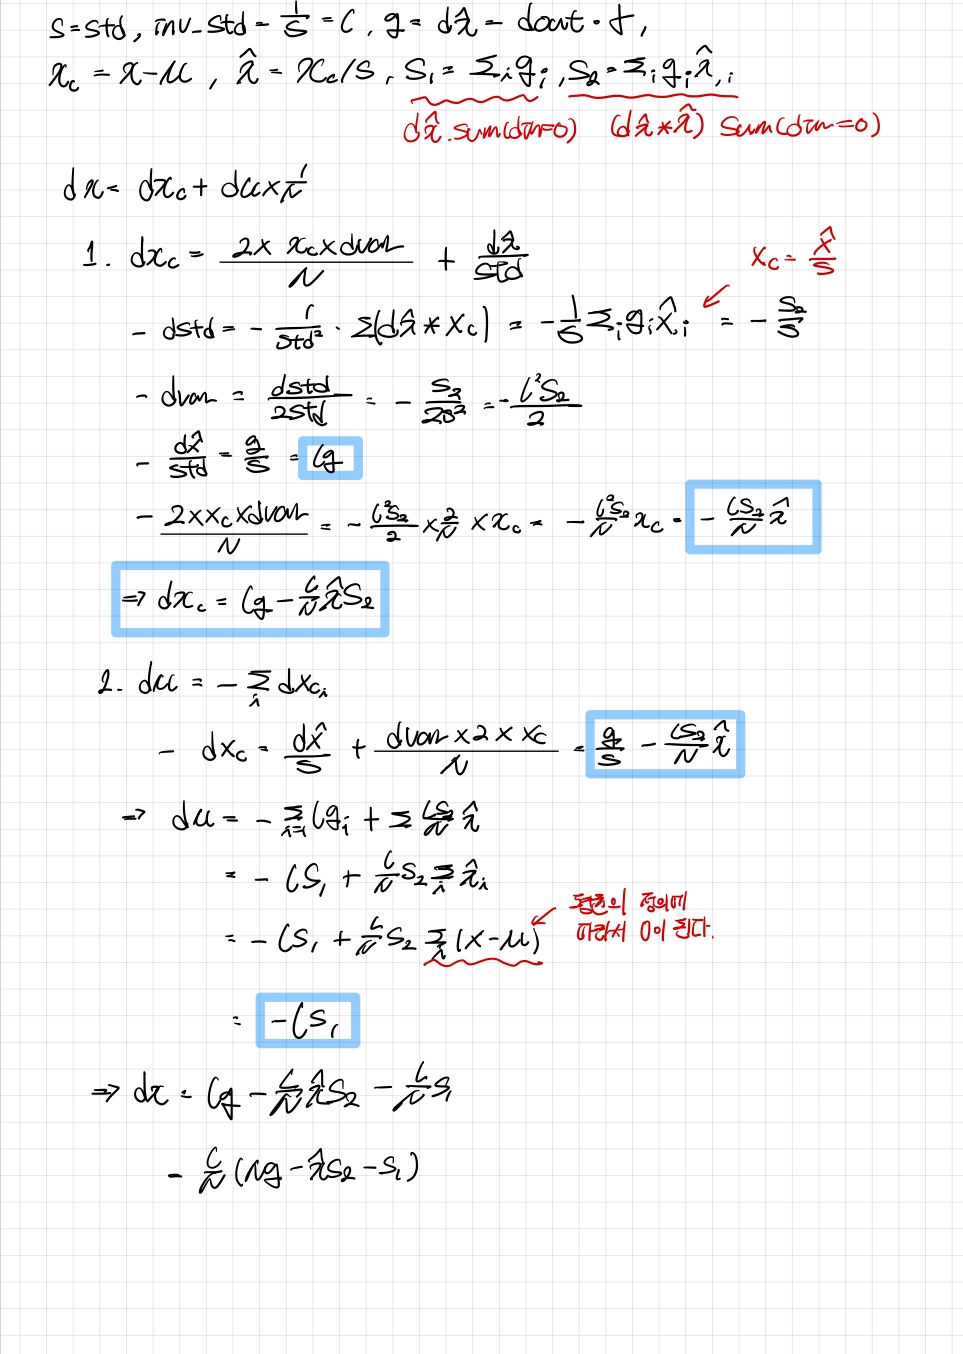 S = std, inv_std = 1/S = C, g = dx̂ = dout · γ,
x_c = x-μ, x̂ = x_c/S, S₁ = Σᵢgᵢ, S₂ = Σᵢgᵢx̂ᵢ
dx̂.sum(dim=0) (dx̂*x̂) sum(dim=0)
dx = dx_c + dμ × 1/N
1. dx_c = (2 × x_c × dvar)/N + dx̂/std
x_c = x̂/S
- dstd = - 1/std² · Σ(dx̂ * x_c) = -1/S Σᵢgᵢx̂ᵢ = - S₂/S
- dvar = dstd/2std = - S₂/2S² = - C²S₂/2
- dx̂/std = g/S = Cg
- (2×x_c×dvar)/N = - C²S₂/2 × 2/N × x_c = - C²S₂/N x_c = - CS₂/N x̂
⇒ dx_c = Cg - C/N x̂S₂
2. dμ = - Σᵢ dx_cᵢ
- dx_c = dx̂/S + (dvar × 2 × x_c)/N = g/S - CS₂/N x̂
⇒ dμ = - Σᵢ₌₁ Cgᵢ + Σ CS₂/N x̂
= - CS₁ + C/N S₂ Σᵢ x̂ᵢ
= - CS₁ + C/N S₂ Σᵢ (x-μ)
정의에
따라서 0이 된다.
= -CS₁
⇒ dx = Cg - C/N x̂S₂ - C/N S₁
= C/N (Ng - x̂S₂ - S₁)